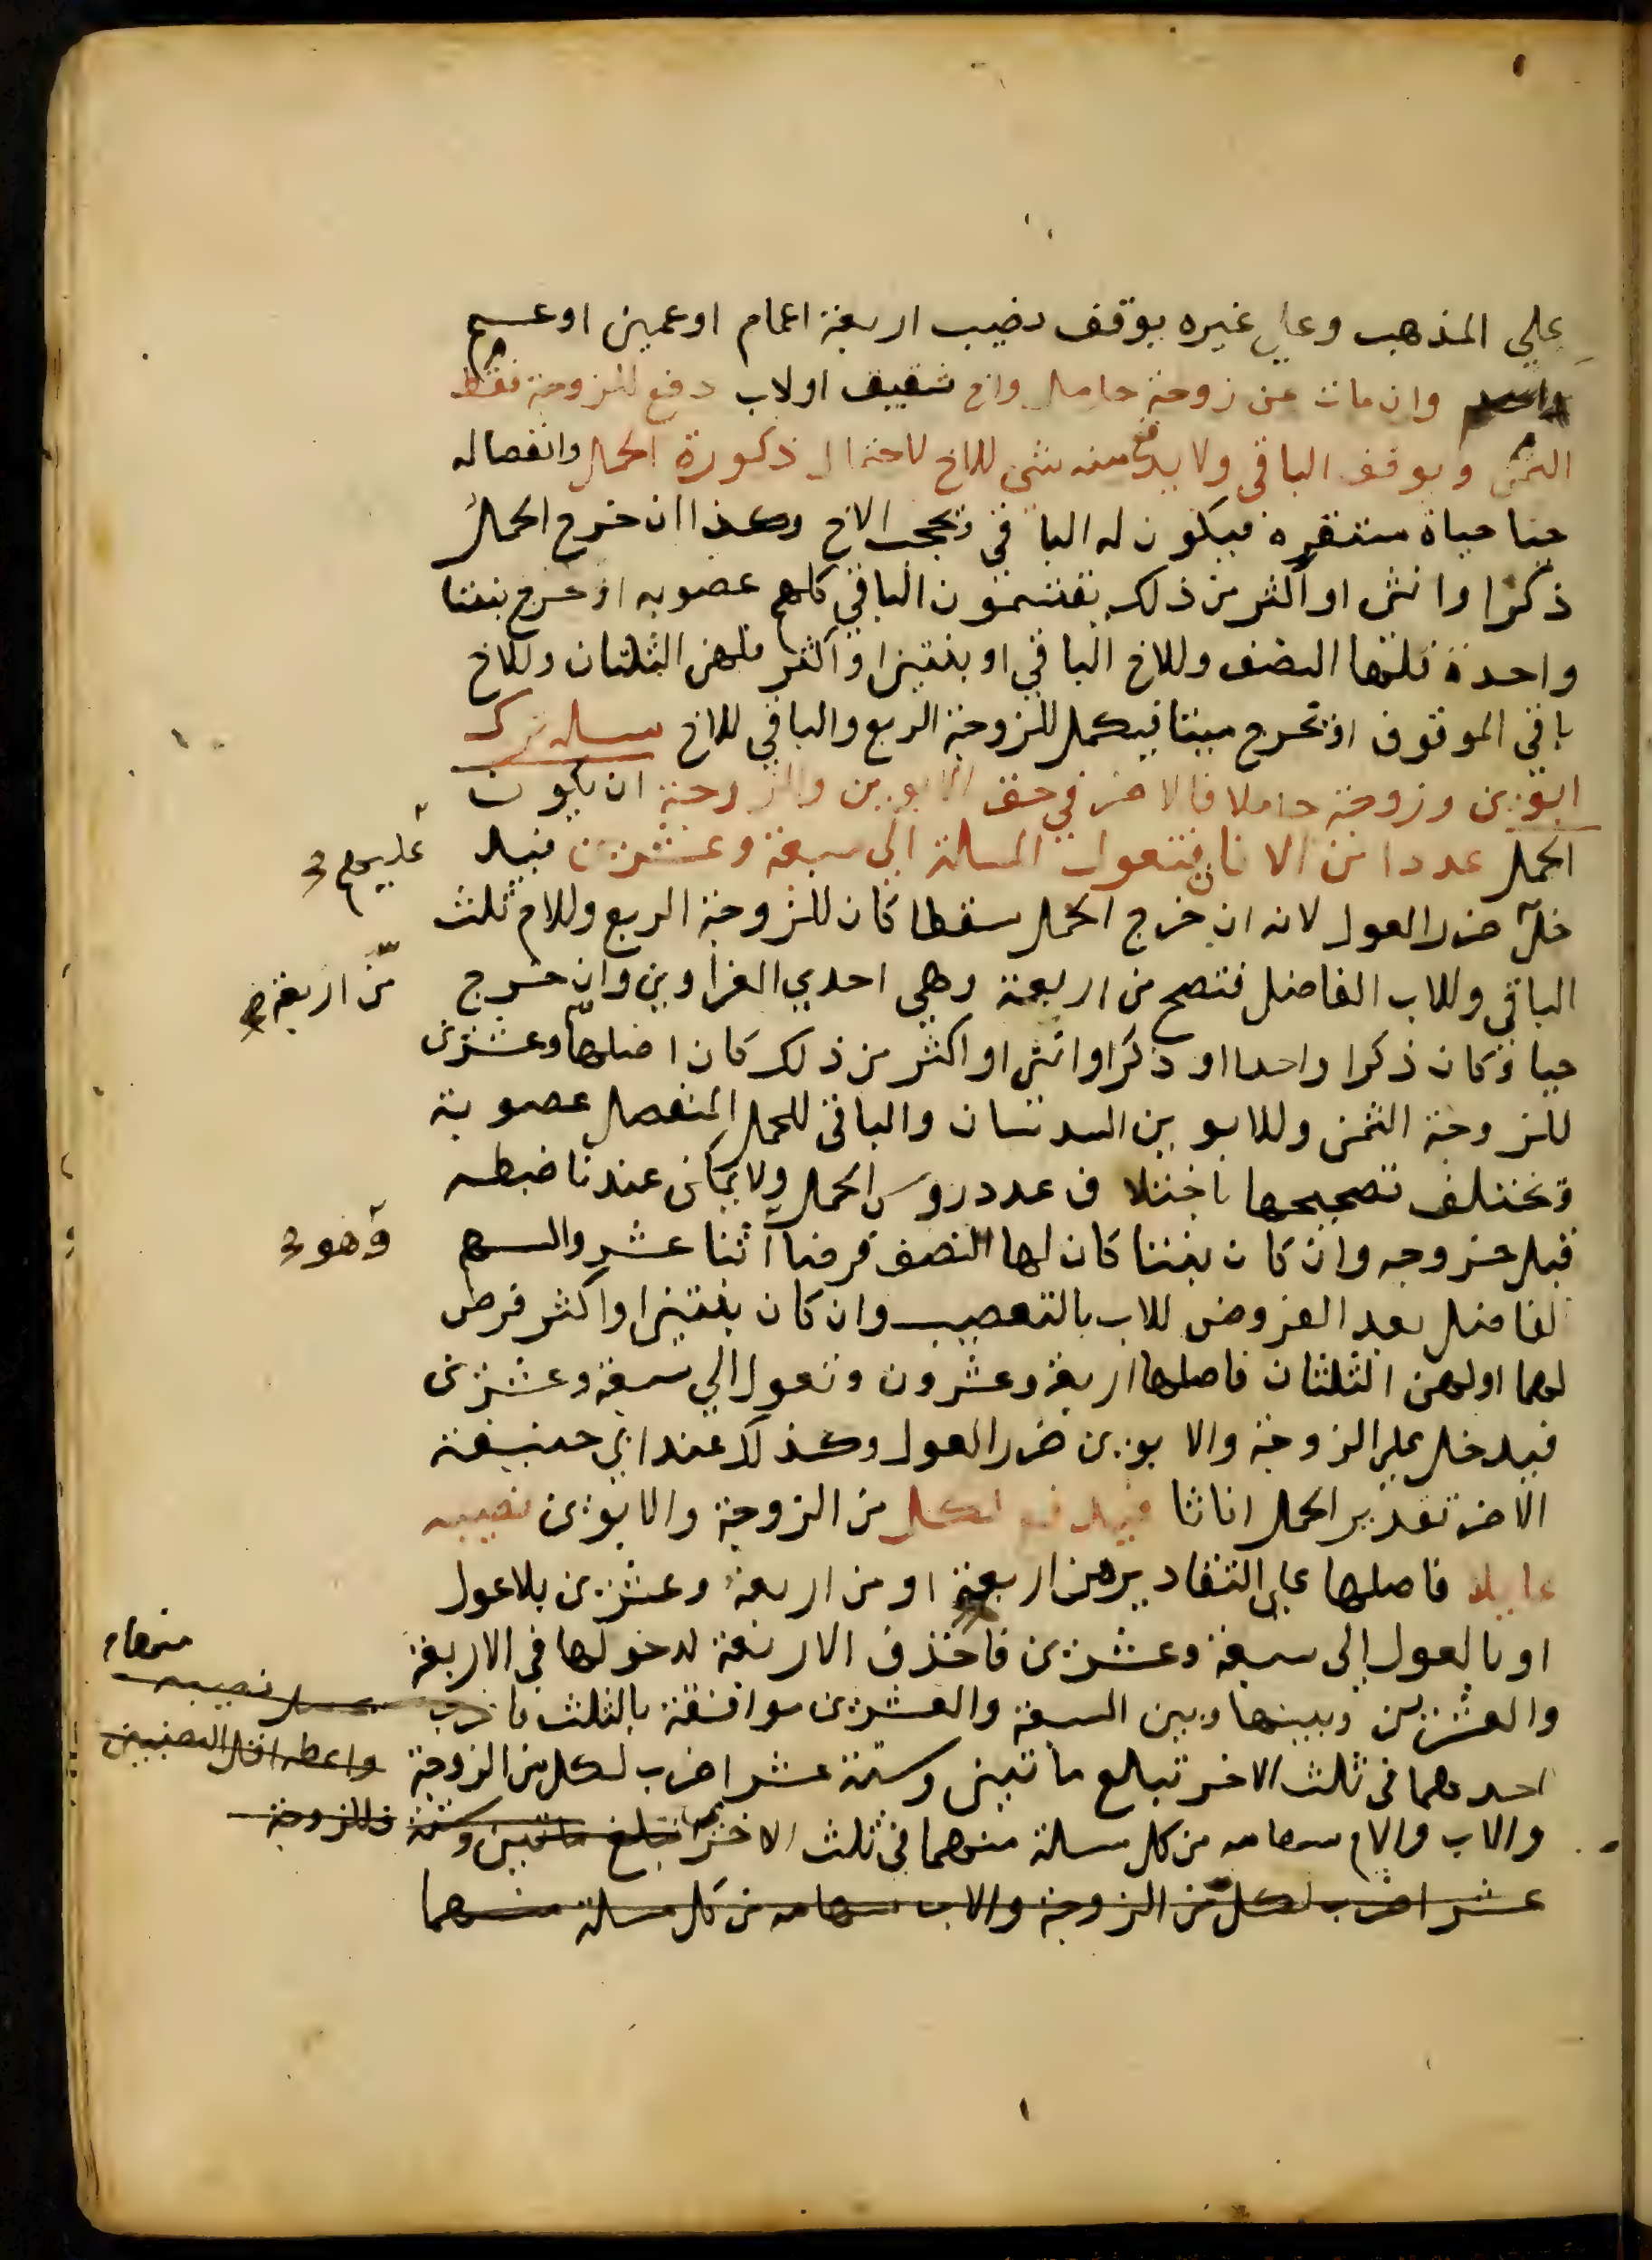 علي المذهب وعلي غيره يوقف نصيب اربعة اعمام او عمين او عم
وان مات عن زوجة حامل واخ شقيق او لاب دفع للزوجة فقط
الثمن ويوقف الباقي ولا يدفع منه شي للاخ لاحتمال ذكورة الحمل وانفصاله
حيا حياة مستقره فيكون له الباقي ويحجب الاخ وكذا ان خرج الحمل
ذكرا وانثى او اكثر من ذلك يقتسمون الباقي كلهم عصوبه او خرج بنتا
واحدة فلها النصف وللاخ الباقي او بنتين او اكثر فلهن الثلثان وللاخ
باقي الموقوف او تخرج ميتا فيكمل للزوجة الربع والباقي للاخ مسله ترك
ابوين وزوجة حاملا فالاضر في حق الابوين والزوجة ان يكون
الحمل عددا من الاناث فتعول المسلة الى سبعة وعشرين فيد
عليهم
خل ضرر العول لانه ان خرج الحمل سقطا كان للزوجة الربع وللام ثلث
الباقي وللاب الفاضل فتصح من اربعة وهي احدي الغراوين وان خرج
من اربعة
حيا وكان ذكرا واحدا او ذكرا وانثى او اكثر من ذلك كان اصلها وعشرين
للزوجة الثمن وللابوين السدسان والباقي للحمل المنفصل عصوبة
وتختلف تصحيحها باختلاف عدد روس الحمل ولا يمكن عندنا ضبطه
قبل خروجه وان كان بنتا كان لها النصف فرضا اثنا عشر والسهم
وهو
الفاضل بعد الفروض للاب بالتعصيب وان كان بنتين او اكثر فرض
لهما او لهن الثلثان فاصلها اربعة وعشرون وتعول الي سبعة وعشرين
فيدخل علي الزوجة والابوين ضرر العول وكذلك عند ابي حنيفة
الاضر تقدير الحمل اناثا فيدفع لكل من الزوجة والابوين نصيبه
عايلا فاصلها على التقادير من اربعة او من اربعة وعشرين بلا عول
او بالعول إلى سبعة وعشرين فاحذف الاربعة لدخولها في الاربعة
والعشرين وبينها وبين السبعة والعشرين موافقة بالثلث فاضرب
منها
نصيبه
احدهما في ثلث الاخر تبلع ماتين وستة عشر اضرب لكل من الزوجة
واعطه اقل النصيبين
والاب والام سهامه من كل مسلة منهما في ثلث الاخرى تبلغ ماتين وستة
فللزوجة
عشر اضرب لكل من الزوجة والاب سهامه من كل مسلة منهما